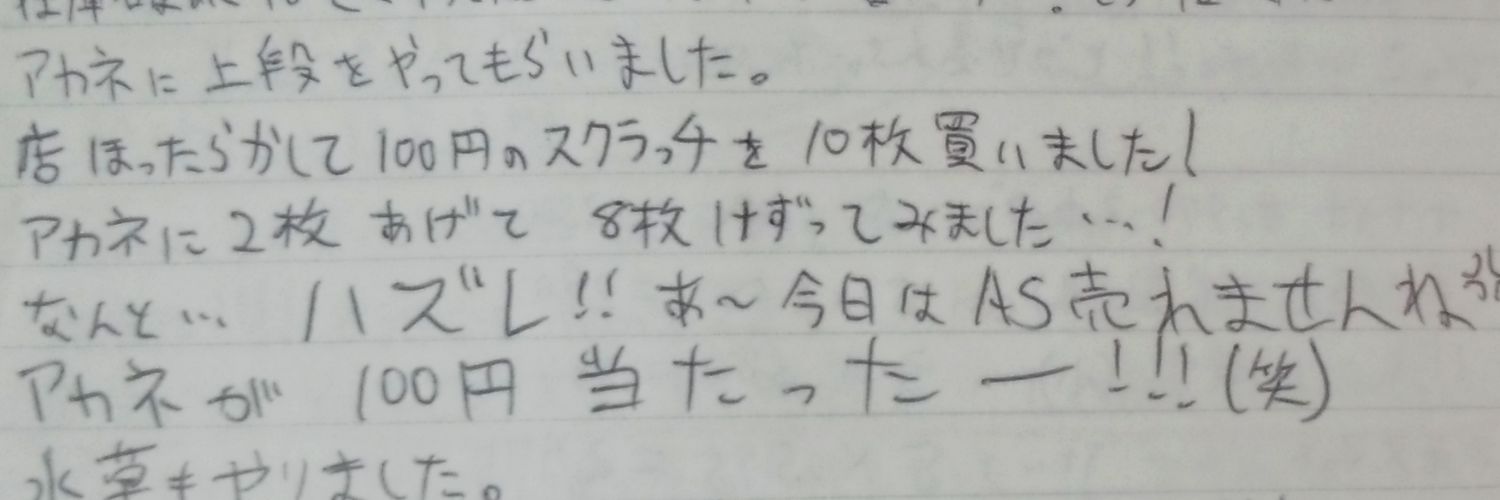 アカネに上段をやってもらいました。
店ほったらかして100円のスクラッチを10枚買いました!
アカネに2枚あげて 8枚けずってみました…!
なんと… ハズレ!! あ~今日はAS売れませんね
アカネが 100円 当たったー!!!(笑)
水草もやりました。